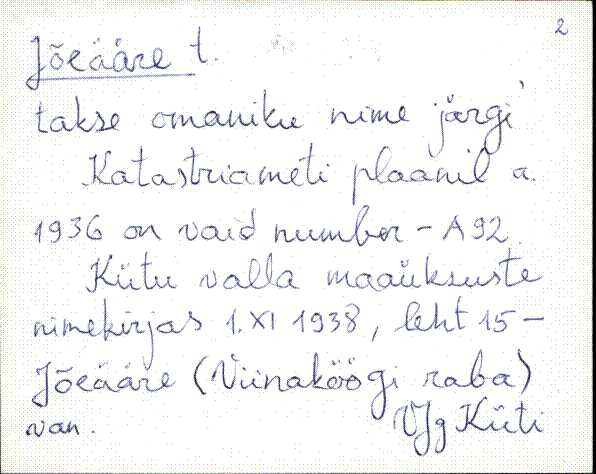 2
Jõeääre t.
takse omaniku nime järgi
Katastriameti plaanil a.
1936 on vaid number - A 92.
Kiitu valla maaüksuste
nimekirjas 1. XI 1938, leht 15 -
Jõeääre (Viinaköögi raba)
van. VJg Kiiti